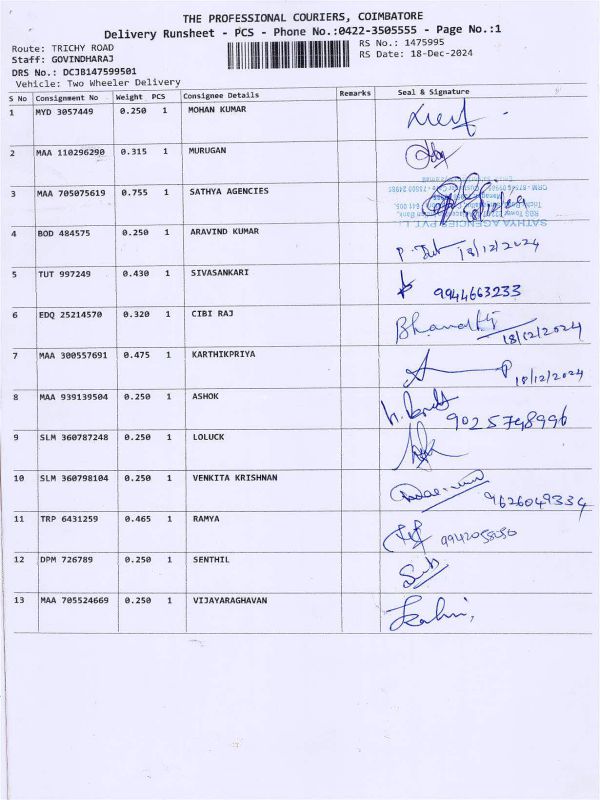 THE PROFESSIONAL COURIERS, COIMBATORE
Delivery Runsheet - PCS - Phone No.:0422-3505555 - Page No.:1
Route: TRICHY ROAD
RS No.: 1475995
Staff: GOVINDHARAJ
RS Date: 18-Dec-2024
DRS No.: DCJB147599501
Vehicle: Two Wheeler Delivery
S No Consignment No Weight PCS Consignee Details Remarks Seal & Signature
1 MYD 3057449 0.250 1 MOHAN KUMAR
2 MAA 110296290 0.315 1 MURUGAN
3 MAA 705075619 0.755 1 SATHYA AGENCIES 18/12/24
SATHYA AGENCIES PVT. L
4 BOD 484575 0.250 1 ARAVIND KUMAR 18/12/2024
5 TUT 997249 0.430 1 SIVASANKARI 9944663233
6 EDQ 25214570 0.320 1 CIBI RAJ 18/12/2024
7 MAA 300557691 0.475 1 KARTHIKPRIYA 18/12/2024
8 MAA 939139504 0.250 1 ASHOK 9025748996
9 SLM 360787248 0.250 1 LOLUCK
10 SLM 360798104 0.250 1 VENKITA KRISHNAN 9626049334
11 TRP 6431259 0.465 1 RAMYA
12 DPM 726789 0.250 1 SENTHIL
13 MAA 705524669 0.250 1 VIJAYARAGHAVAN